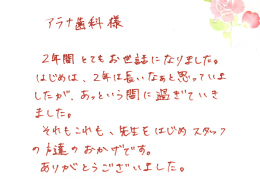 アラナ歯科様
2年間とてもお世話になりました。
はじめは、2年は長いなぁと思っていま
したが、あっという間に過ぎていき
ました。
それもこれも、先生をはじめスタッフ
の方達のおかげです。
ありがとうございました。